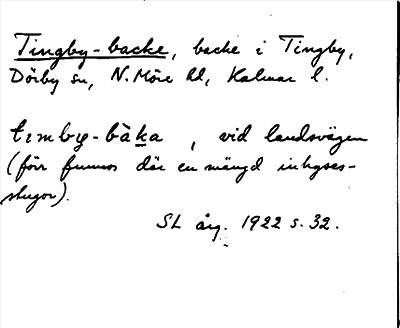 Tingby-backe, backe i Tingby,
Dörby sn, N. Möre hd, Kalmar l.
tɪmby-bàka, vid landsvägen
(förr funnos där en mängd inhyses-
stugor).
SL årg. 1922 s. 32.